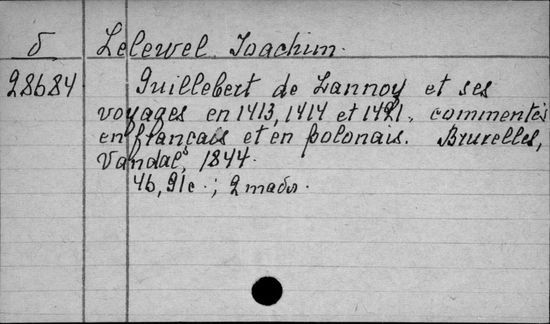 δ Lelewel Joachim.
28684 Guillebert de Lannoy et ses
voyages en 1413, 1414 et 1421, commentés
en français et en polonais. Bruxelles,
Vandal, 1844.
46, 91c.; 2 mado.